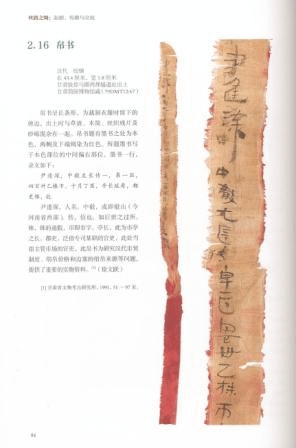 丝路之绸:起源、传播与交流
2.16 帛书
汉代
长 43.4 厘米,宽 1.8 厘米
甘肃敦煌马圈湾烽燧遗址出土
甘肃简牍博物馆藏
帛书呈长条形,为裁制衣服时留下的
剪边,出土时与草渣、木简、丝织残片及
砂砾混杂在一起。帛书题有墨书之处为本
色,两侧及下端则染为红色,墨书写
于本色部位的中间偏右部位,墨书一行,
录文如下:
尹逢深,中殽左长传一,帛一匹,
四百卅乙株币。十月丁酉,亭长延寿,都
吏稚,釱
尹逢深,人名。中殽,或即殽山(今
河南省西部)。传,信也,如后世之过所。
株,铢的通假,亭长,此为市亭
之长。都吏,泛指专司某职的官吏,此处当
指主管市场的官吏。此帛书为研究汉代市贸
制度、价格和边塞的来源等问题,
提供了重要的实物资料。[1](徐文跃)
[1] 甘肃省文物考古研究所,1991,51—97页。
尹逢深中殽左长传一帛一匹四百卅乙株币